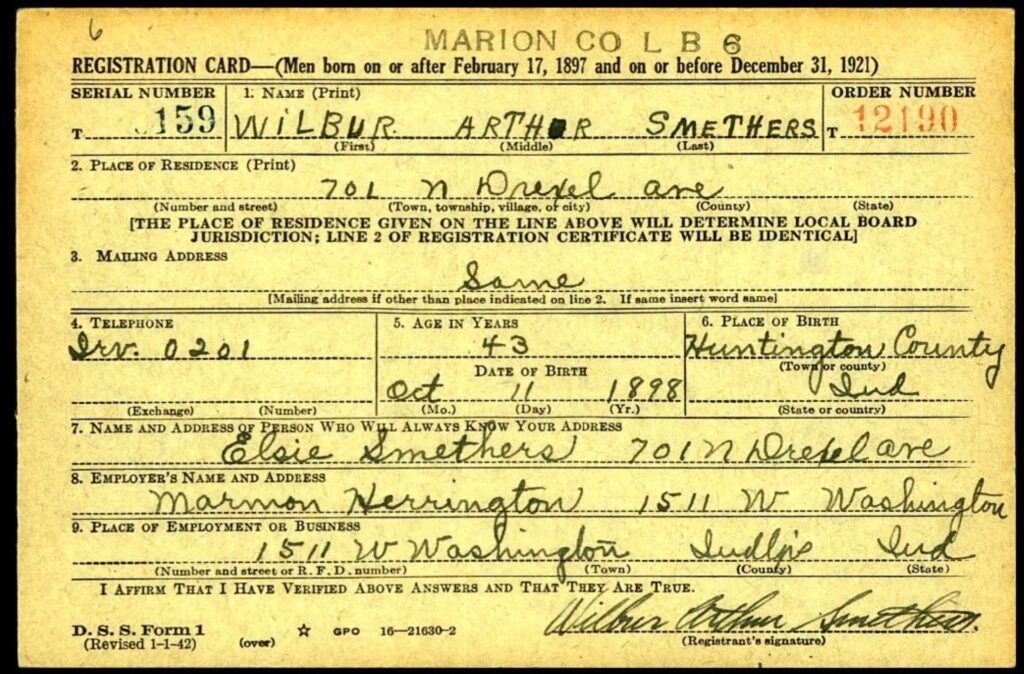 6
MARION CO L B 6
REGISTRATION CARD—(Men born on or after February 17, 1897 and on or before December 31, 1921)
SERIAL NUMBER 1. NAME (Print) ORDER NUMBER
T 159 WILBUR ARTHUR SMETHERS T 12190
(First) (Middle) (Last)
2. PLACE OF RESIDENCE (Print)
701 N Drexel ave
(Number and street) (Town, township, village, or city) (County) (State)
[THE PLACE OF RESIDENCE GIVEN ON THE LINE ABOVE WILL DETERMINE LOCAL BOARD
JURISDICTION; LINE 2 OF REGISTRATION CERTIFICATE WILL BE IDENTICAL]
3. MAILING ADDRESS
Same
[Mailing address if other than place indicated on line 2. If same insert word same]
4. TELEPHONE 5. AGE IN YEARS 6. PLACE OF BIRTH
Irv. 0201 43 Huntington County
DATE OF BIRTH (Town or county)
Oct 11 1898 Ind
(Exchange) (Number) (Mo.) (Day) (Yr.) (State or country)
7. NAME AND ADDRESS OF PERSON WHO WILL ALWAYS KNOW YOUR ADDRESS
Elsie Smethers 701 N Drexel ave
8. EMPLOYER'S NAME AND ADDRESS
Marmon Herrington 1511 W Washington
9. PLACE OF EMPLOYMENT OR BUSINESS
1511 W Washington Indlp's Ind
(Number and street or R. F. D. number) (Town) (County) (State)
I AFFIRM THAT I HAVE VERIFIED ABOVE ANSWERS AND THAT THEY ARE TRUE.
Wilbur Arthur Smethers.
D. S. S. Form 1
(Revised 1-1-42) (over) ☆ GPO 16—21630-2 (Registrant's signature)